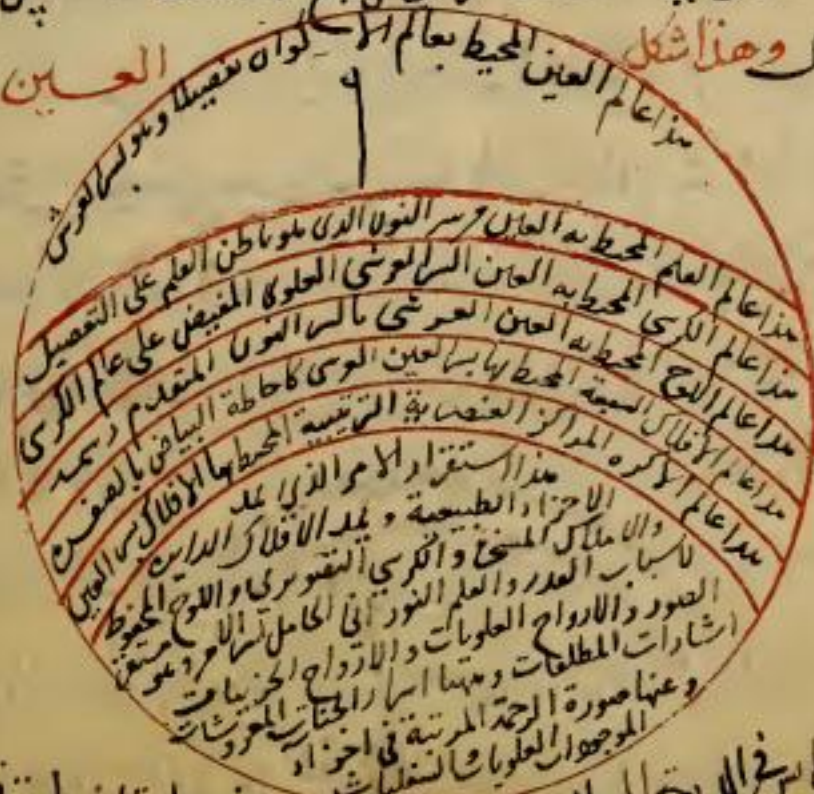 وهذا شكل العين
هذا عالم العين المحيط بعالم الأكوان تفصيلا وهو لسر العرش
هذا عالم العلم المحيط به العين من سر النون الذى هو باطن العلم على التفصيل
هذا عالم الكرسى المحيط به العين السر العرشى العلوى المفيض على عالم الكرسى
هذا عالم اللوح المحيط به العين العرشى بالسر النون المتقدم رسمه
هذا عالم الأفلاك السبعة المحيط بها سر العين العرشى كاحاطة البياض بالصفرة
هذا عالم الأكره المراكز العنصرية الترتيبية المحيط بها الأفلاك سر العين
هذا استقرار الامر الذي يمد
الاجزاء الطبيعية ويمد الافلاك
والاملاك والكرسي واللوح المحفوظ
لأسباب القدر والعلم النوراني الحامل لسر الامر وهو مستقر
الصور والارواح العلويات والارواح الجزييات
اشارات المطلعات ومنها اسرار الجنات المعروشات
وعنها صورة الرحمة المرتبة في اجزاء
الموجودات العلويات والسفليات